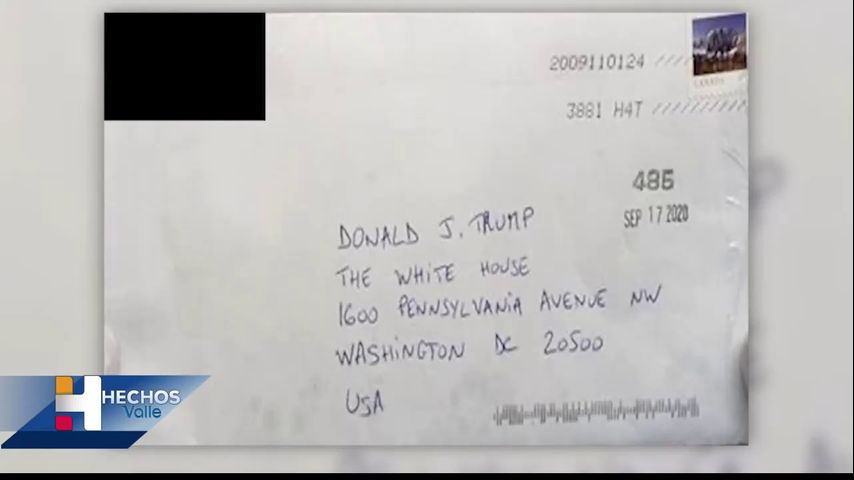 2009110124
CANADA
3881 H4T
485
SEP 17 2020
DONALD J. TRUMP
THE WHITE HOUSE
1600 PENNSYLVANIA AVENUE NW
WASHINGTON DC 20500
USA
HECHOS
Valle